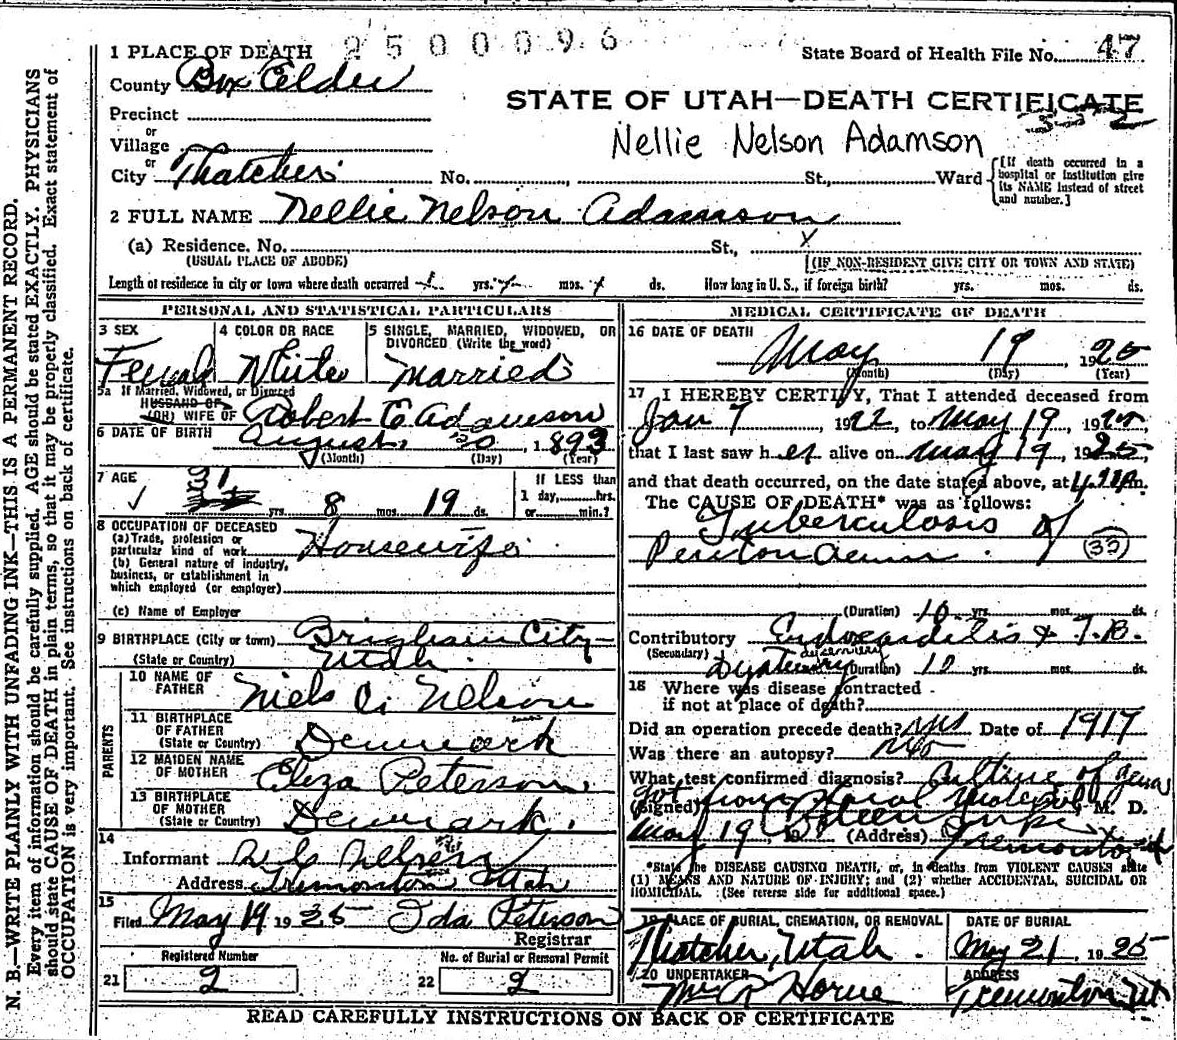 2500096
1 PLACE OF DEATH
State Board of Health File No. 47
County Box Elder
STATE OF UTAH—DEATH CERTIFICATE
Precinct
or
Village
Nellie Nelson Adamson
or
City Thatcher No. , St., Ward
[If death occurred in a hospital or institution give its NAME instead of street and number.]
2 FULL NAME Nellie Nelson Adamson
(a) Residence. No. St.,
(USUAL PLACE OF ABODE) (IF NON-RESIDENT GIVE CITY OR TOWN AND STATE)
Length of residence in city or town where death occurred yrs. mos. ds. How long in U. S., if foreign birth? yrs. mos. ds.
PERSONAL AND STATISTICAL PARTICULARS
3 SEX
Female
4 COLOR OR RACE
White
5 SINGLE, MARRIED, WIDOWED, OR
DIVORCED (Write the word)
Married
5a If Married, Widowed, or Divorced
HUSBAND OF
(OR) WIFE OF Robert E Adamson
6 DATE OF BIRTH August 30 1893
(Month) (Day) (Year)
7 AGE
31 yrs. 8 mos. 19 ds.
If LESS than
1 day, hrs.
or min.?
8 OCCUPATION OF DECEASED
(a) Trade, profession or
particular kind of work Housewife
(b) General nature of industry,
business, or establishment in
which employed (or employer)
(c) Name of Employer
9 BIRTHPLACE (City or town) Brigham City
(State or Country) Utah
PARENTS
10 NAME OF
FATHER Niels C. Nelson
11 BIRTHPLACE
OF FATHER
(State or Country) Denmark
12 MAIDEN NAME
OF MOTHER Eliza Peterson
13 BIRTHPLACE
OF MOTHER
(State or Country) Denmark.
14
Informant N. C. Nelson
Address Tremonton Utah
15
Filed May 19 1925 Ida Peterson
Registrar
Registered Number
21 2
No. of Burial or Removal Permit
22 2
MEDICAL CERTIFICATE OF DEATH
16 DATE OF DEATH
May 19 1925
(Month) (Day) (Year)
17 I HEREBY CERTIFY, That I attended deceased from
Jan 7 1922, to May 19, 1925
that I last saw her alive on May 19, 1925,
and that death occurred, on the date stated above, at m.
The CAUSE OF DEATH* was as follows:
Tuberculosis of
Peritonaeum. (33)
(Duration) 10 yrs. mos. ds.
Contributory Endocarditis & T.B.
(Secondary) Dysentery (Duration) 10 yrs. mos. ds.
18 Where was disease contracted
if not at place of death?
Did an operation precede death? yes Date of 1917
Was there an autopsy? No
What test confirmed diagnosis? Culture of germs
got from
(Signed) M. D.
May 19, 19 (Address) Tremonton
*State the DISEASE CAUSING DEATH, or, in deaths from VIOLENT CAUSES state
(1) MEANS AND NATURE OF INJURY; and (2) whether ACCIDENTAL, SUICIDAL OR
HOMICIDAL. (See reverse side for additional space.)
19 PLACE OF BURIAL, CREMATION, OR REMOVAL
Thatcher, Utah.
DATE OF BURIAL
May 21, 1925
20 UNDERTAKER
Horne
ADDRESS
Tremonton Ut
READ CAREFULLY INSTRUCTIONS ON BACK OF CERTIFICATE
N. B.—WRITE PLAINLY WITH UNFADING INK—THIS IS A PERMANENT RECORD.
Every item of information should be carefully supplied. AGE should be stated EXACTLY. PHYSICIANS
should state CAUSE OF DEATH in plain terms, so that it may be properly classified. Exact statement of
OCCUPATION is very important. See instructions on back of certificate.